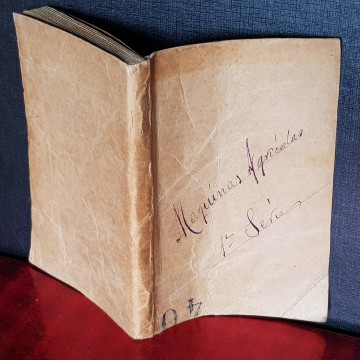 Maquinas Agricolas
1ª Série
40